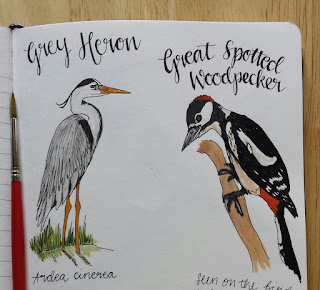 Grey Heron
Great Spotted
Woodpecker
Ardea cinerea
Seen on the